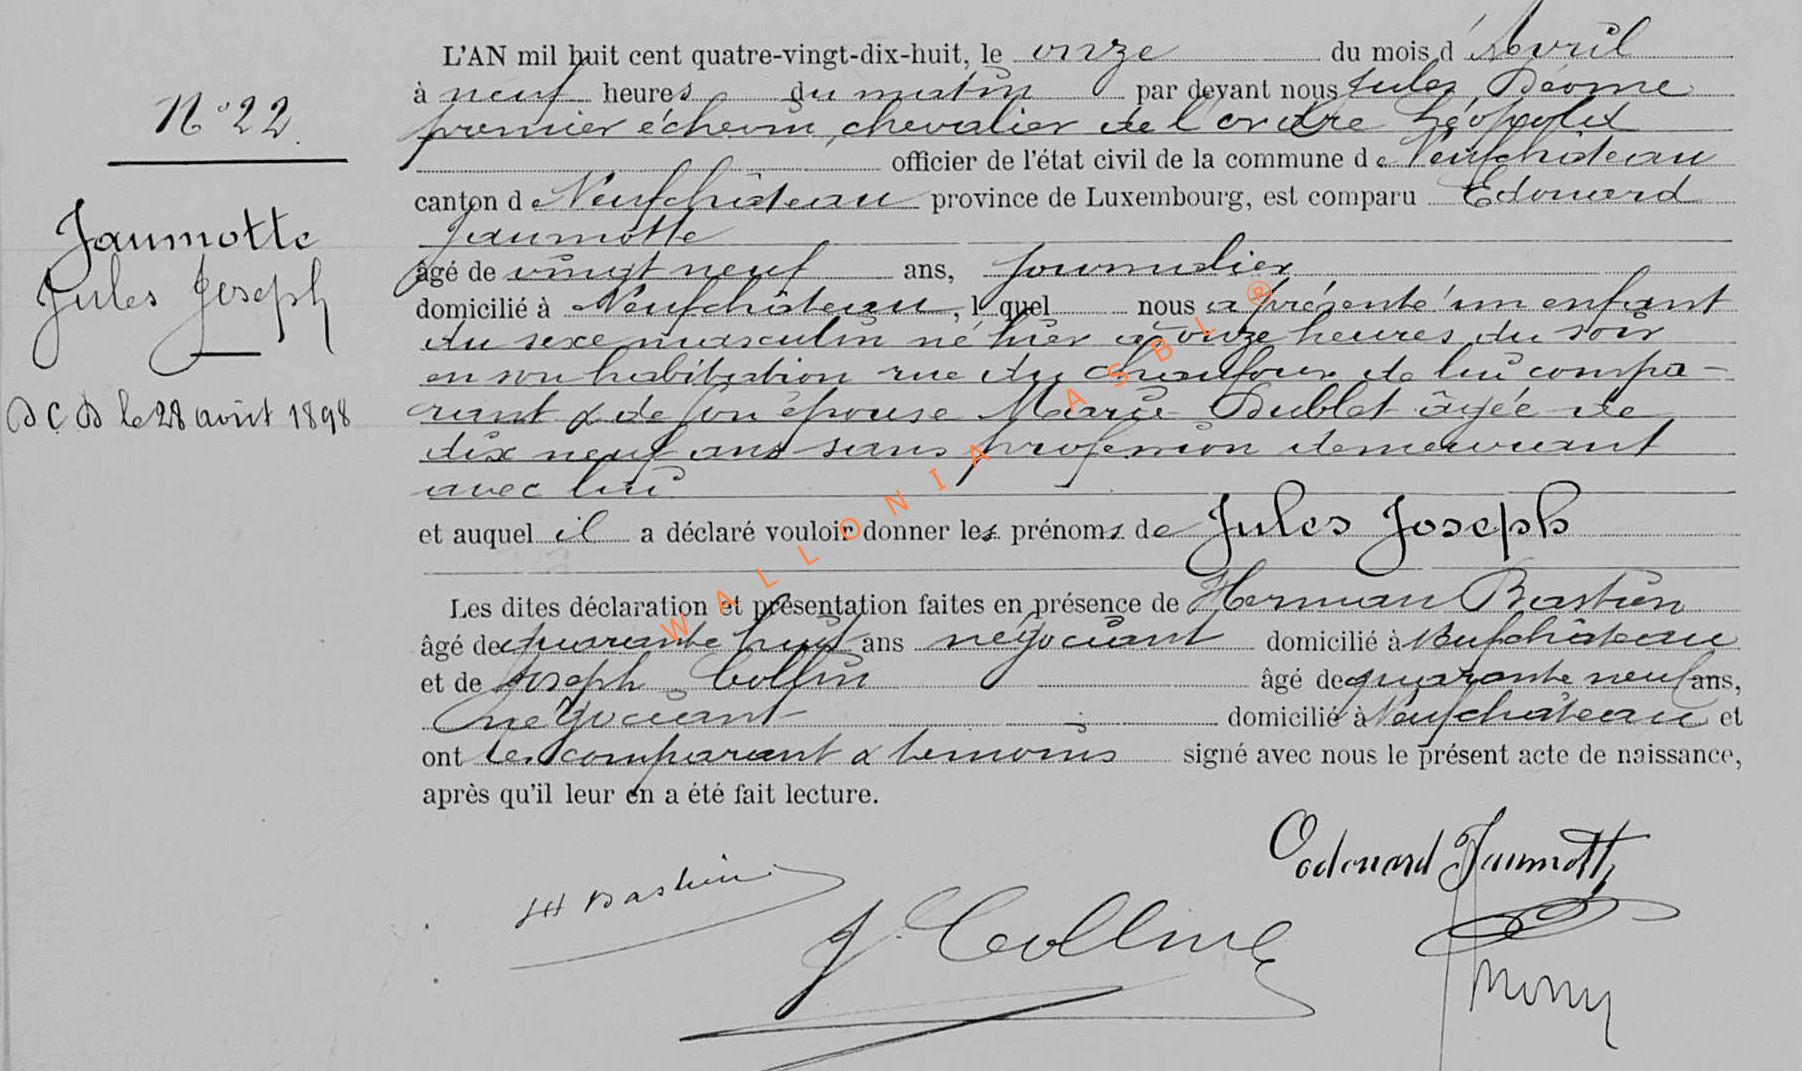 N° 22.
Jaumotte
Jules Joseph
DCD le 28 août 1898
L'AN mil huit cent quatre-vingt-dix-huit, le onze du mois d'Avril
à neuf heures du matin par devant nous Jules
premier échevin, chevalier de l'ordre Léopold
officier de l'état civil de la commune de Neufchâteau
canton de Neufchâteau province de Luxembourg, est comparu Edouard
Jaumotte
âgé de vingt neuf ans, journalier
domicilié à Neufchâteau, lequel nous a présenté un enfant
du sexe masculin né hier à onze heures du soir
en son habitation rue du Chaufour de lui compa-
rant & de son épouse Marie Dublet âgée de
dix neuf ans sans profession demeurant
avec lui
et auquel il a déclaré vouloir donner les prénoms de Jules Joseph
Les dites déclaration et présentation faites en présence de Herman Bastien
âgé de quarante huit ans négociant domicilié à Neufchâteau
et de Joseph Collin âgé de quarante neuf ans,
négociant domicilié à Neufchâteau et
ont les comparant & témoins signé avec nous le présent acte de naissance,
après qu'il leur en a été fait lecture.
Edouard Jaumotte
H Bastien
J. Colline
WALLONIA ASBL ®